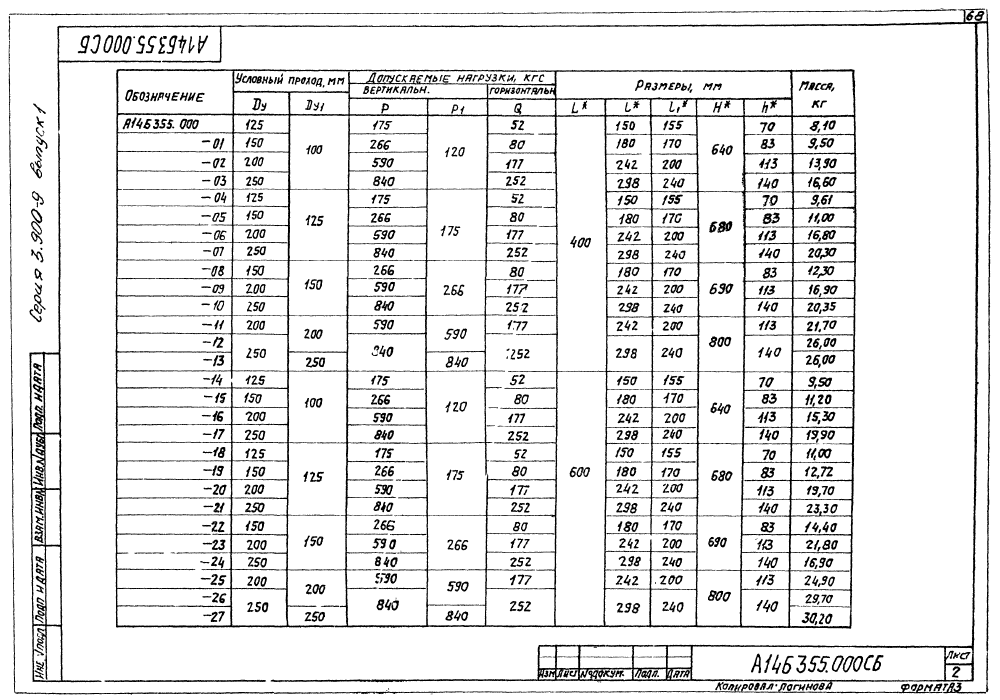 68
А14Б355.000СБ
Серия 3.900-9 выпуск 1
Обозначение Условный проход, мм Допускаемые нагрузки, кгс Размеры, мм Масса, кг
вертикальн. горизонтальн
Dу Dу1 P P1 Q L* l* l1* H* h*
А14Б355.000 125 100 175 120 52 400 150 155 640 70 8,10
-01 150 266 80 180 170 83 9,50
-02 200 590 177 242 200 113 13,90
-03 250 840 252 298 240 140 16,60
-04 125 125 175 175 52 150 155 680 70 9,61
-05 150 266 80 180 170 83 11,00
-06 200 590 177 242 200 113 16,80
-07 250 840 252 298 240 140 20,30
-08 150 150 266 266 80 180 170 690 83 12,30
-09 200 590 177 242 200 113 16,90
-10 250 840 252 298 240 140 20,35
-11 200 200 590 590 177 242 200 800 113 21,70
-12 250 840 252 298 240 140 26,00
-13 250 840 26,00
-14 125 100 175 120 52 600 150 155 640 70 9,50
-15 150 266 80 180 170 83 11,20
-16 200 590 177 242 200 113 15,30
-17 250 840 252 298 240 140 19,90
-18 125 125 175 175 52 150 155 680 70 11,00
-19 150 266 80 180 170 83 12,72
-20 200 590 177 242 200 113 19,70
-21 250 840 252 298 240 140 23,30
-22 150 150 266 266 80 180 170 690 83 14,40
-23 200 590 177 242 200 113 21,80
-24 250 840 252 298 240 140 16,90
-25 200 200 590 590 177 242 200 800 113 24,90
-26 250 840 252 298 240 140 29,70
-27 250 840 30,20
Инв. № подл. Подп. и дата Взам. инв. № Инв. № дубл. Подп. и дата
Изм Лист № докум. Подп. Дата
А14Б355.000СБ
Лист
2
Копировал: Логинова Формат А3